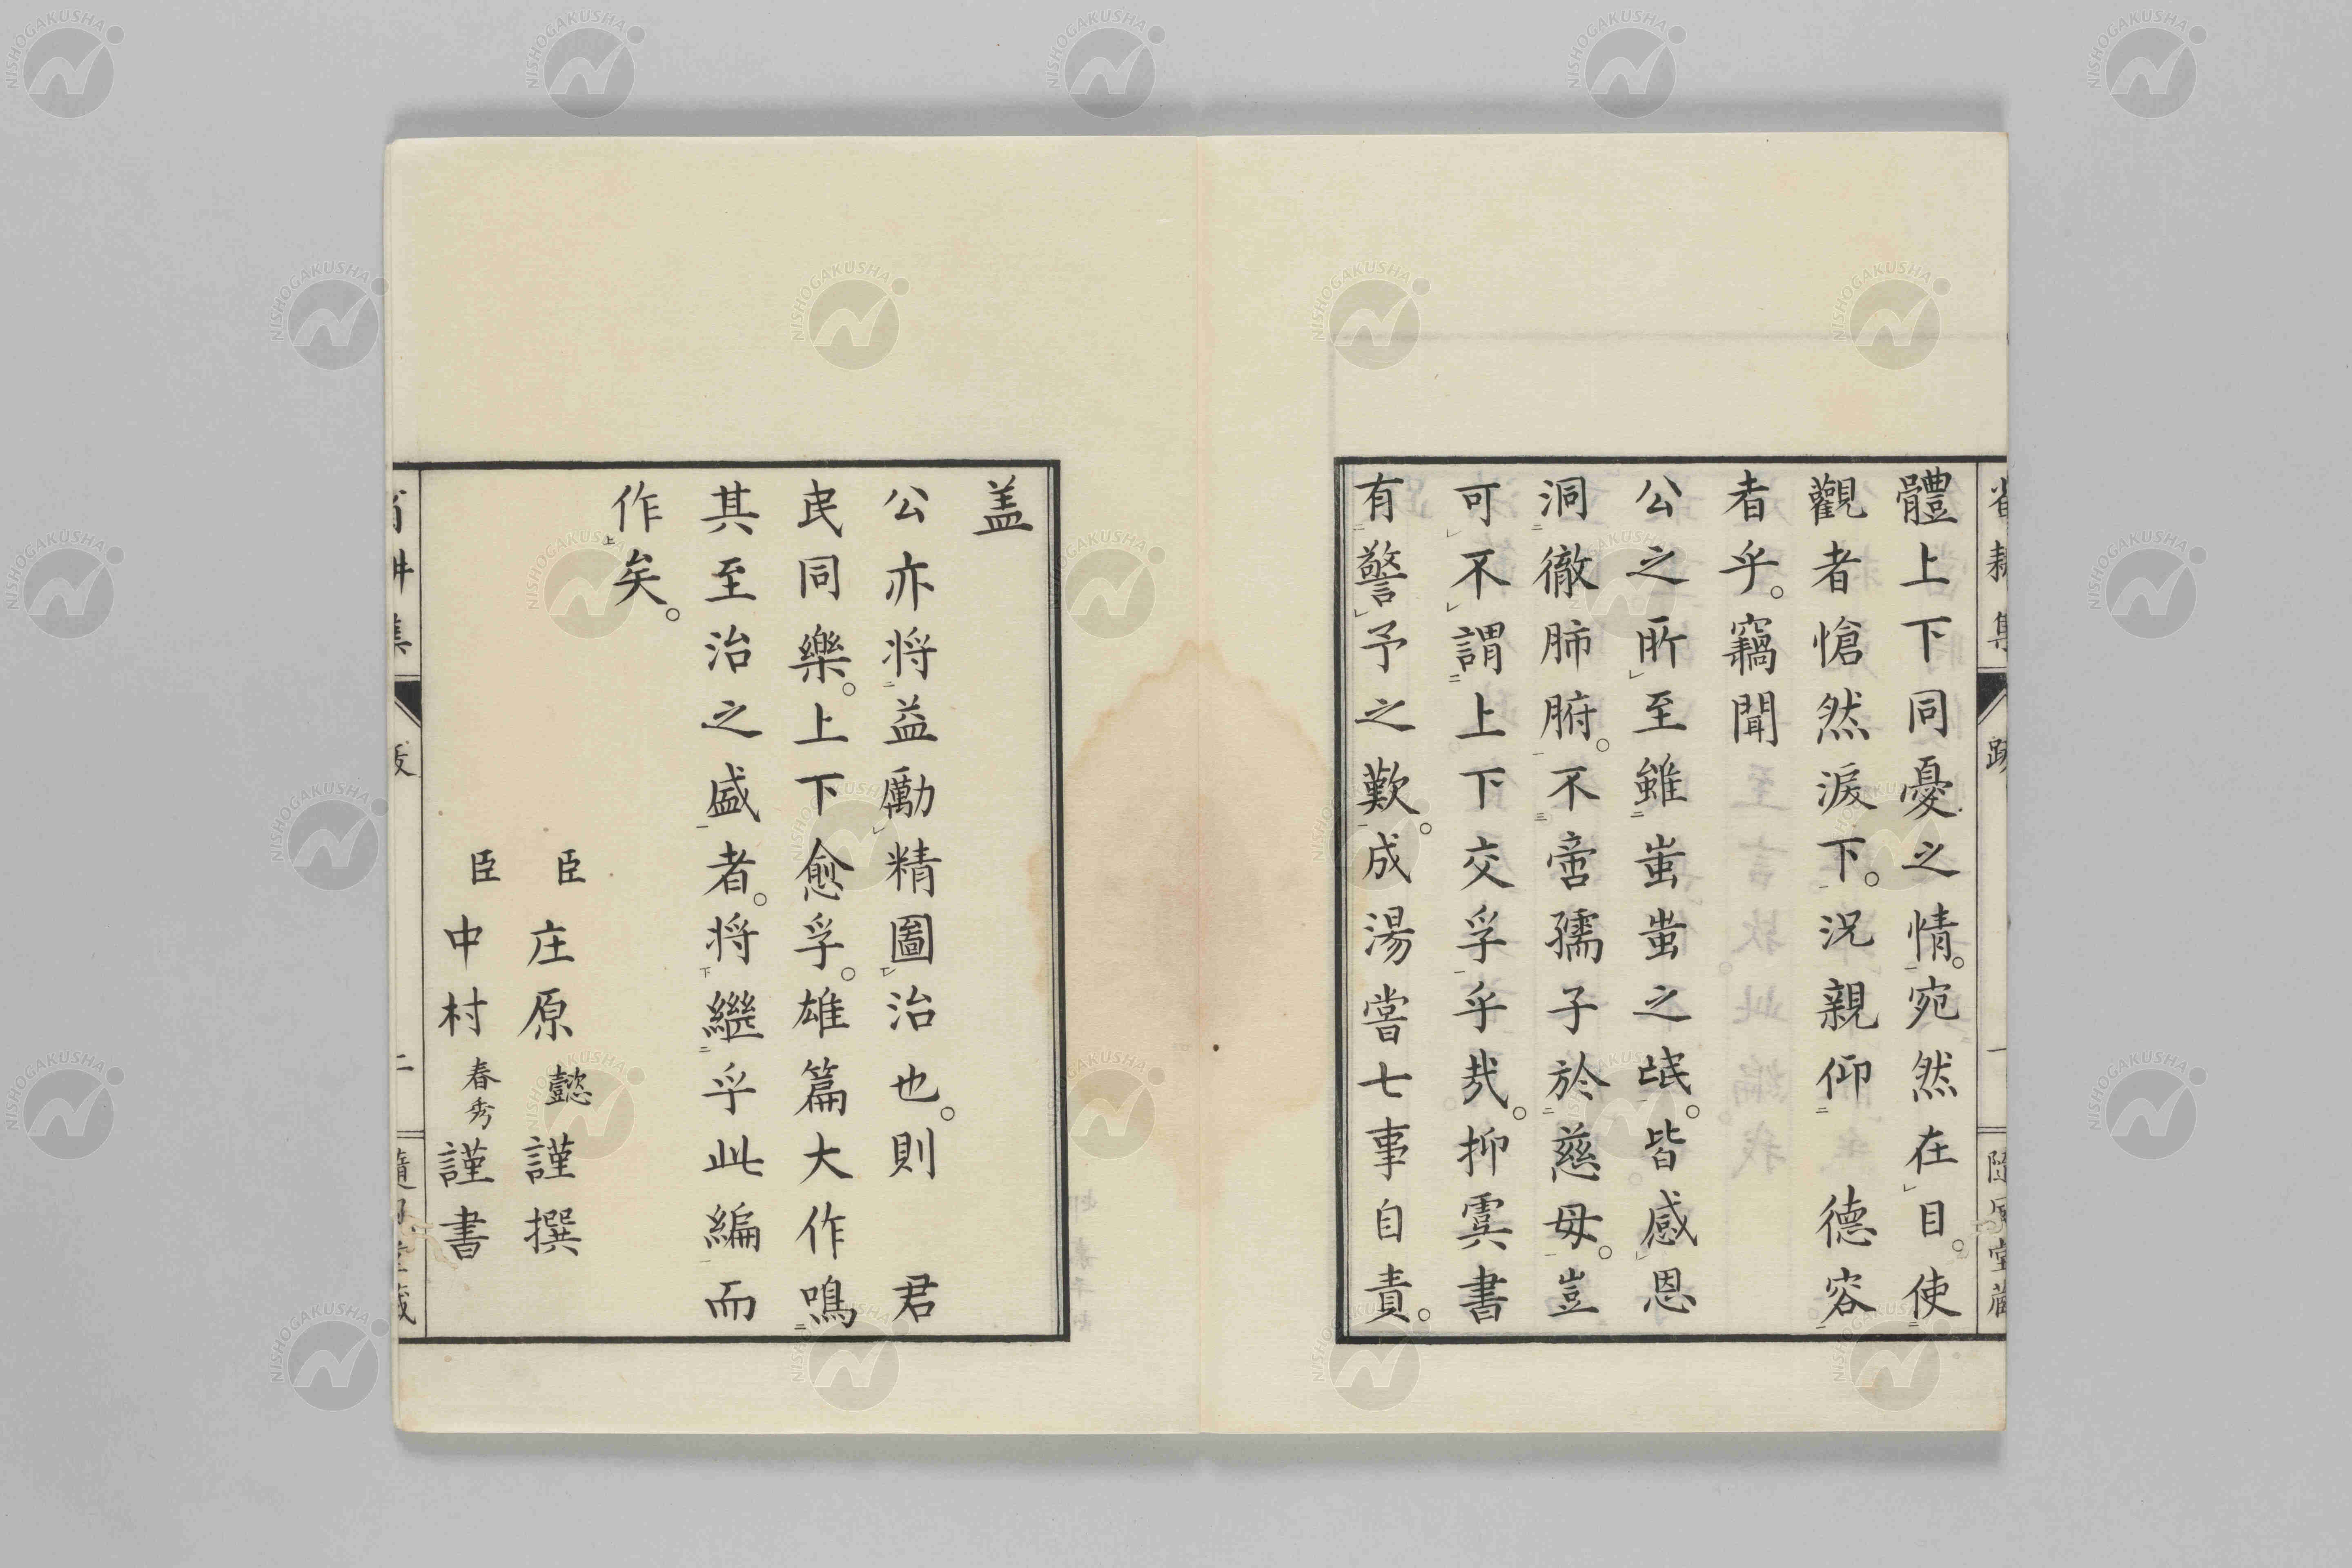 體上下同憂之情。宛然在目。使
觀者愴然淚下。況親仰 德容
者乎。竊聞
公之所至雖蚩蚩之氓。皆感恩
洞徹肺腑。不啻孺子於慈母。豈
可不謂上下交孚乎哉。抑虞書
有警予之歎。成湯嘗七事自責。
盖
公亦将益勵精圖治也。則 君
民同樂。上下愈孚。雄篇大作鳴
其至治之盛者。将繼乎此編而
作矣。
臣庄原懿謹撰
臣中村春秀謹書
NISHOGAKUSHA